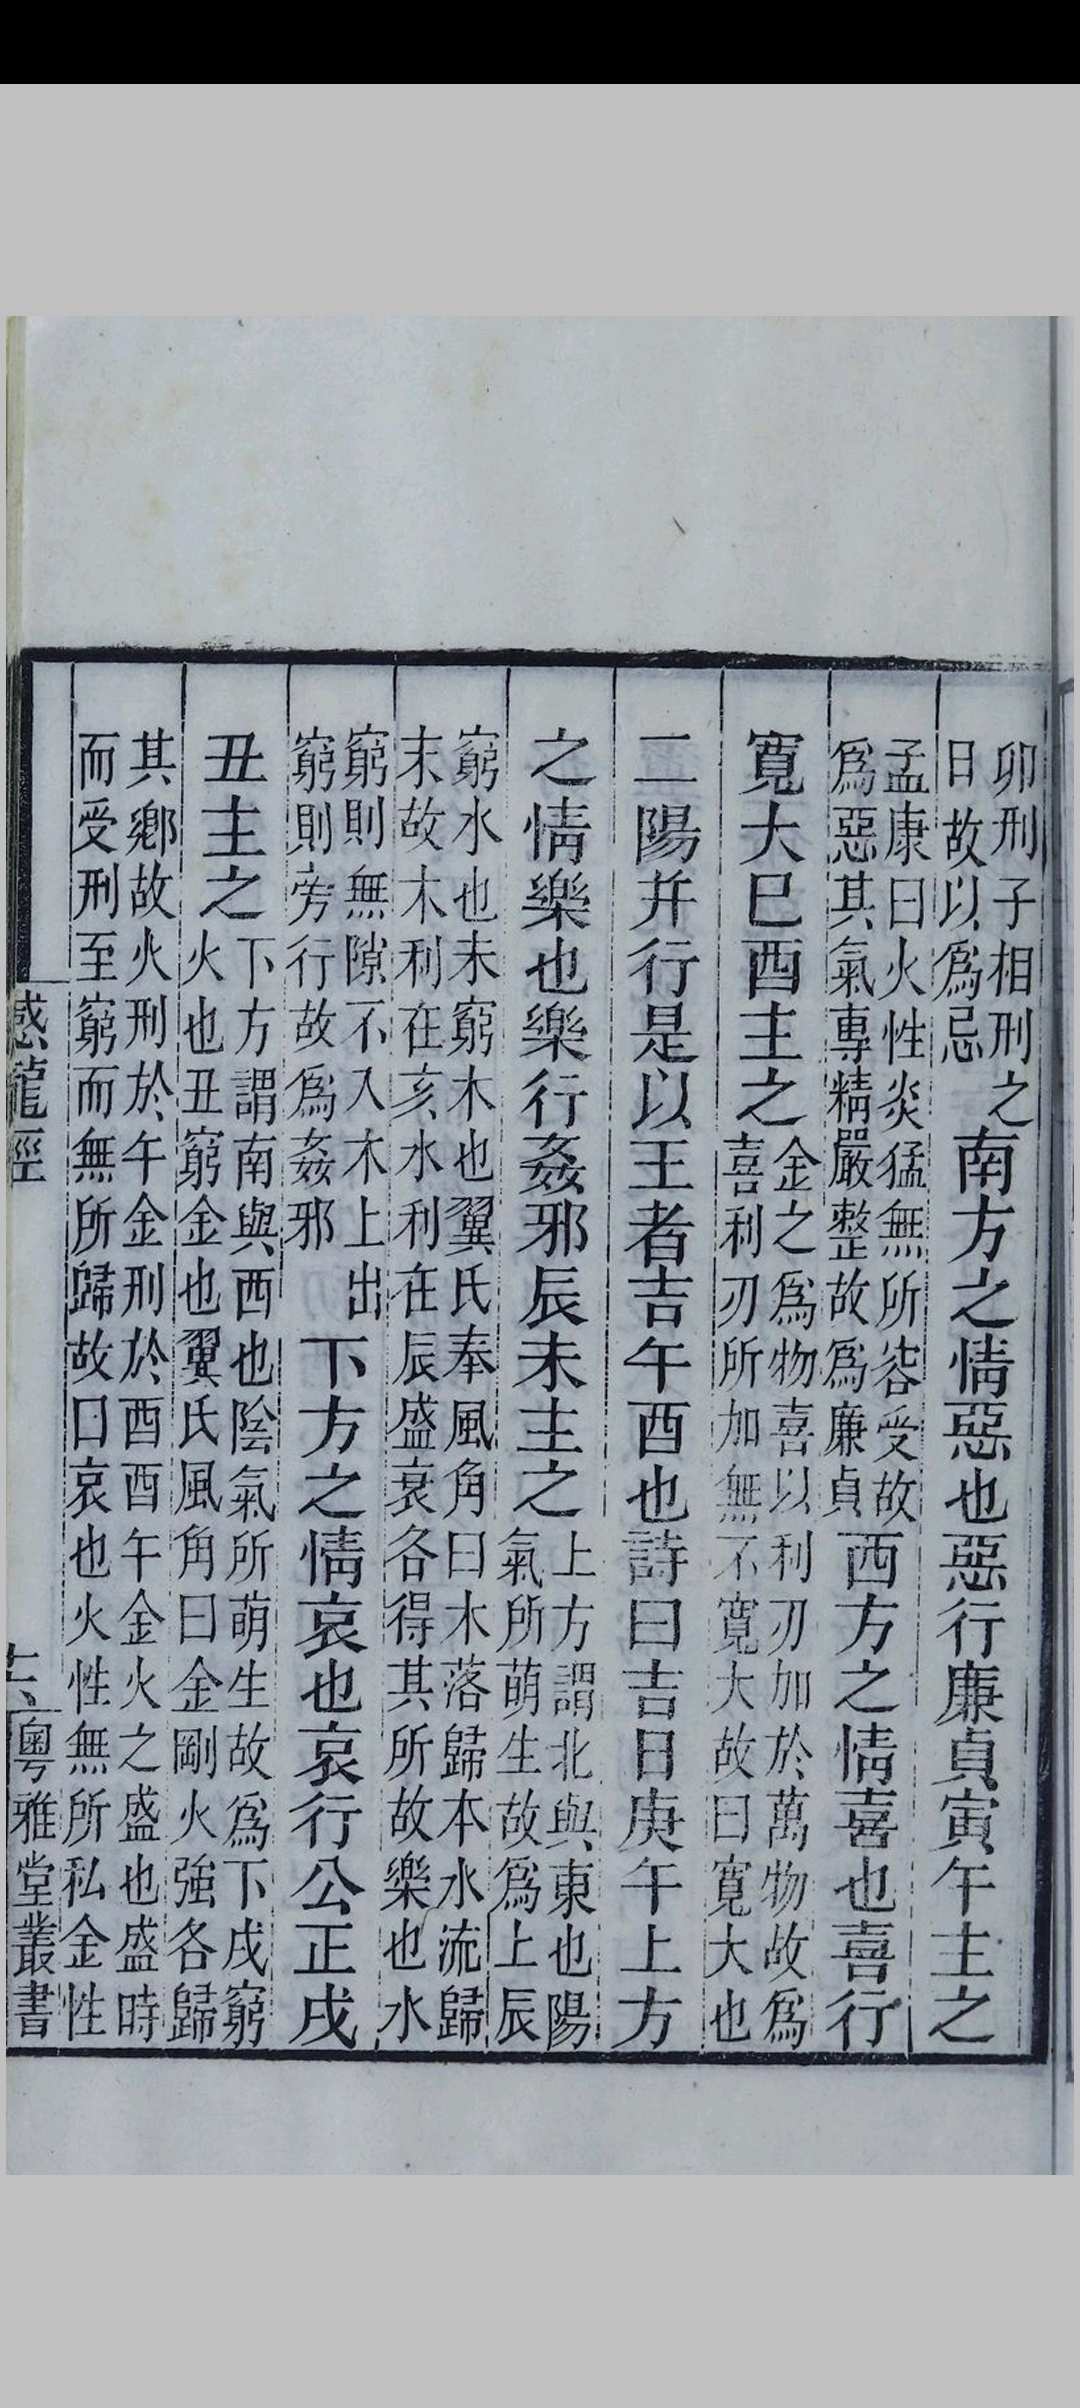 卯刑子相刑之
日故以爲忌
南方之情惡也惡行廉貞寅午主之
孟康曰火性炎猛無所容受故
爲惡其氣專精嚴整故爲廉貞
西方之情喜也喜行
寬大巳酉主之
金之爲物喜以利刃加於萬物故爲
喜利刃所加無不寬大故曰寬大也
二陽并行是以王者吉午酉也詩曰吉日庚午上方
之情樂也樂行姦邪辰未主之
上方謂北與東也陽
氣所萌生故爲上辰
窮水也未窮木也翼氏奉風角曰木落歸本水流歸
末故木利在亥水利在辰盛衰各得其所故樂也水
窮則無隙不入木上出
窮則旁行故爲姦邪
下方之情哀也哀行公正戌
丑主之
下方謂南與西也陰氣所萌生故爲下戌窮
火也丑窮金也翼氏風角曰金剛火強各歸
其鄉故火刑於午金刑於酉酉午金火之盛也盛時
而受刑至窮而無所歸故曰哀也火性無所私金性
粵雅堂叢書